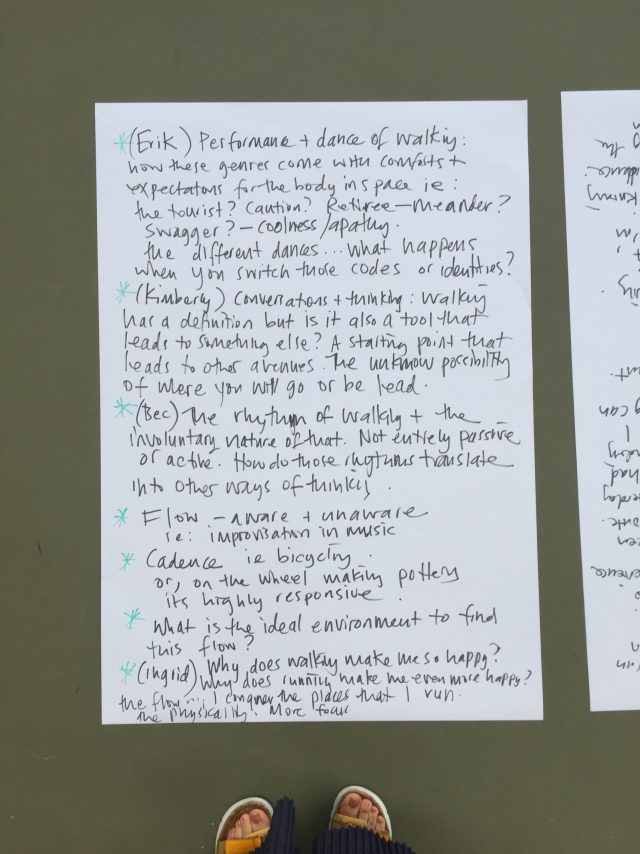 *(Erik) Performane + dance of walking:
how these genres come with comforts +
expectatons for the body in space ie:
the tourist? Caution? Retiree—meander?
Swagger? – coolness/apathy.
the different dances... what happens
when you switch those codes or identities?
*(Kimberly) Conversations + thinking: Walking
has a definition but is it also a tool that
leads to something else? A starting point that
leads to other avenues. The unknown possibility
of where you will go or be lead.
*(Bec) The rhythm of walking + the
involuntary nature of that. Not entirely passive
or active. How do those rhythms translate
into other ways of thinking.
* Flow – aware + unaware
ie: improvisation in music
* Cadence ie bicycling.
or, on the wheel making pottery
its highly responsive.
* What is the ideal environment to find
this flow?
*(Ingrid) Why does walking make me so happy?
Why does running make me even more happy?
the flow... I conquer the places that I run.
the physicality! More focus
the
Know
I'm
can
I
had